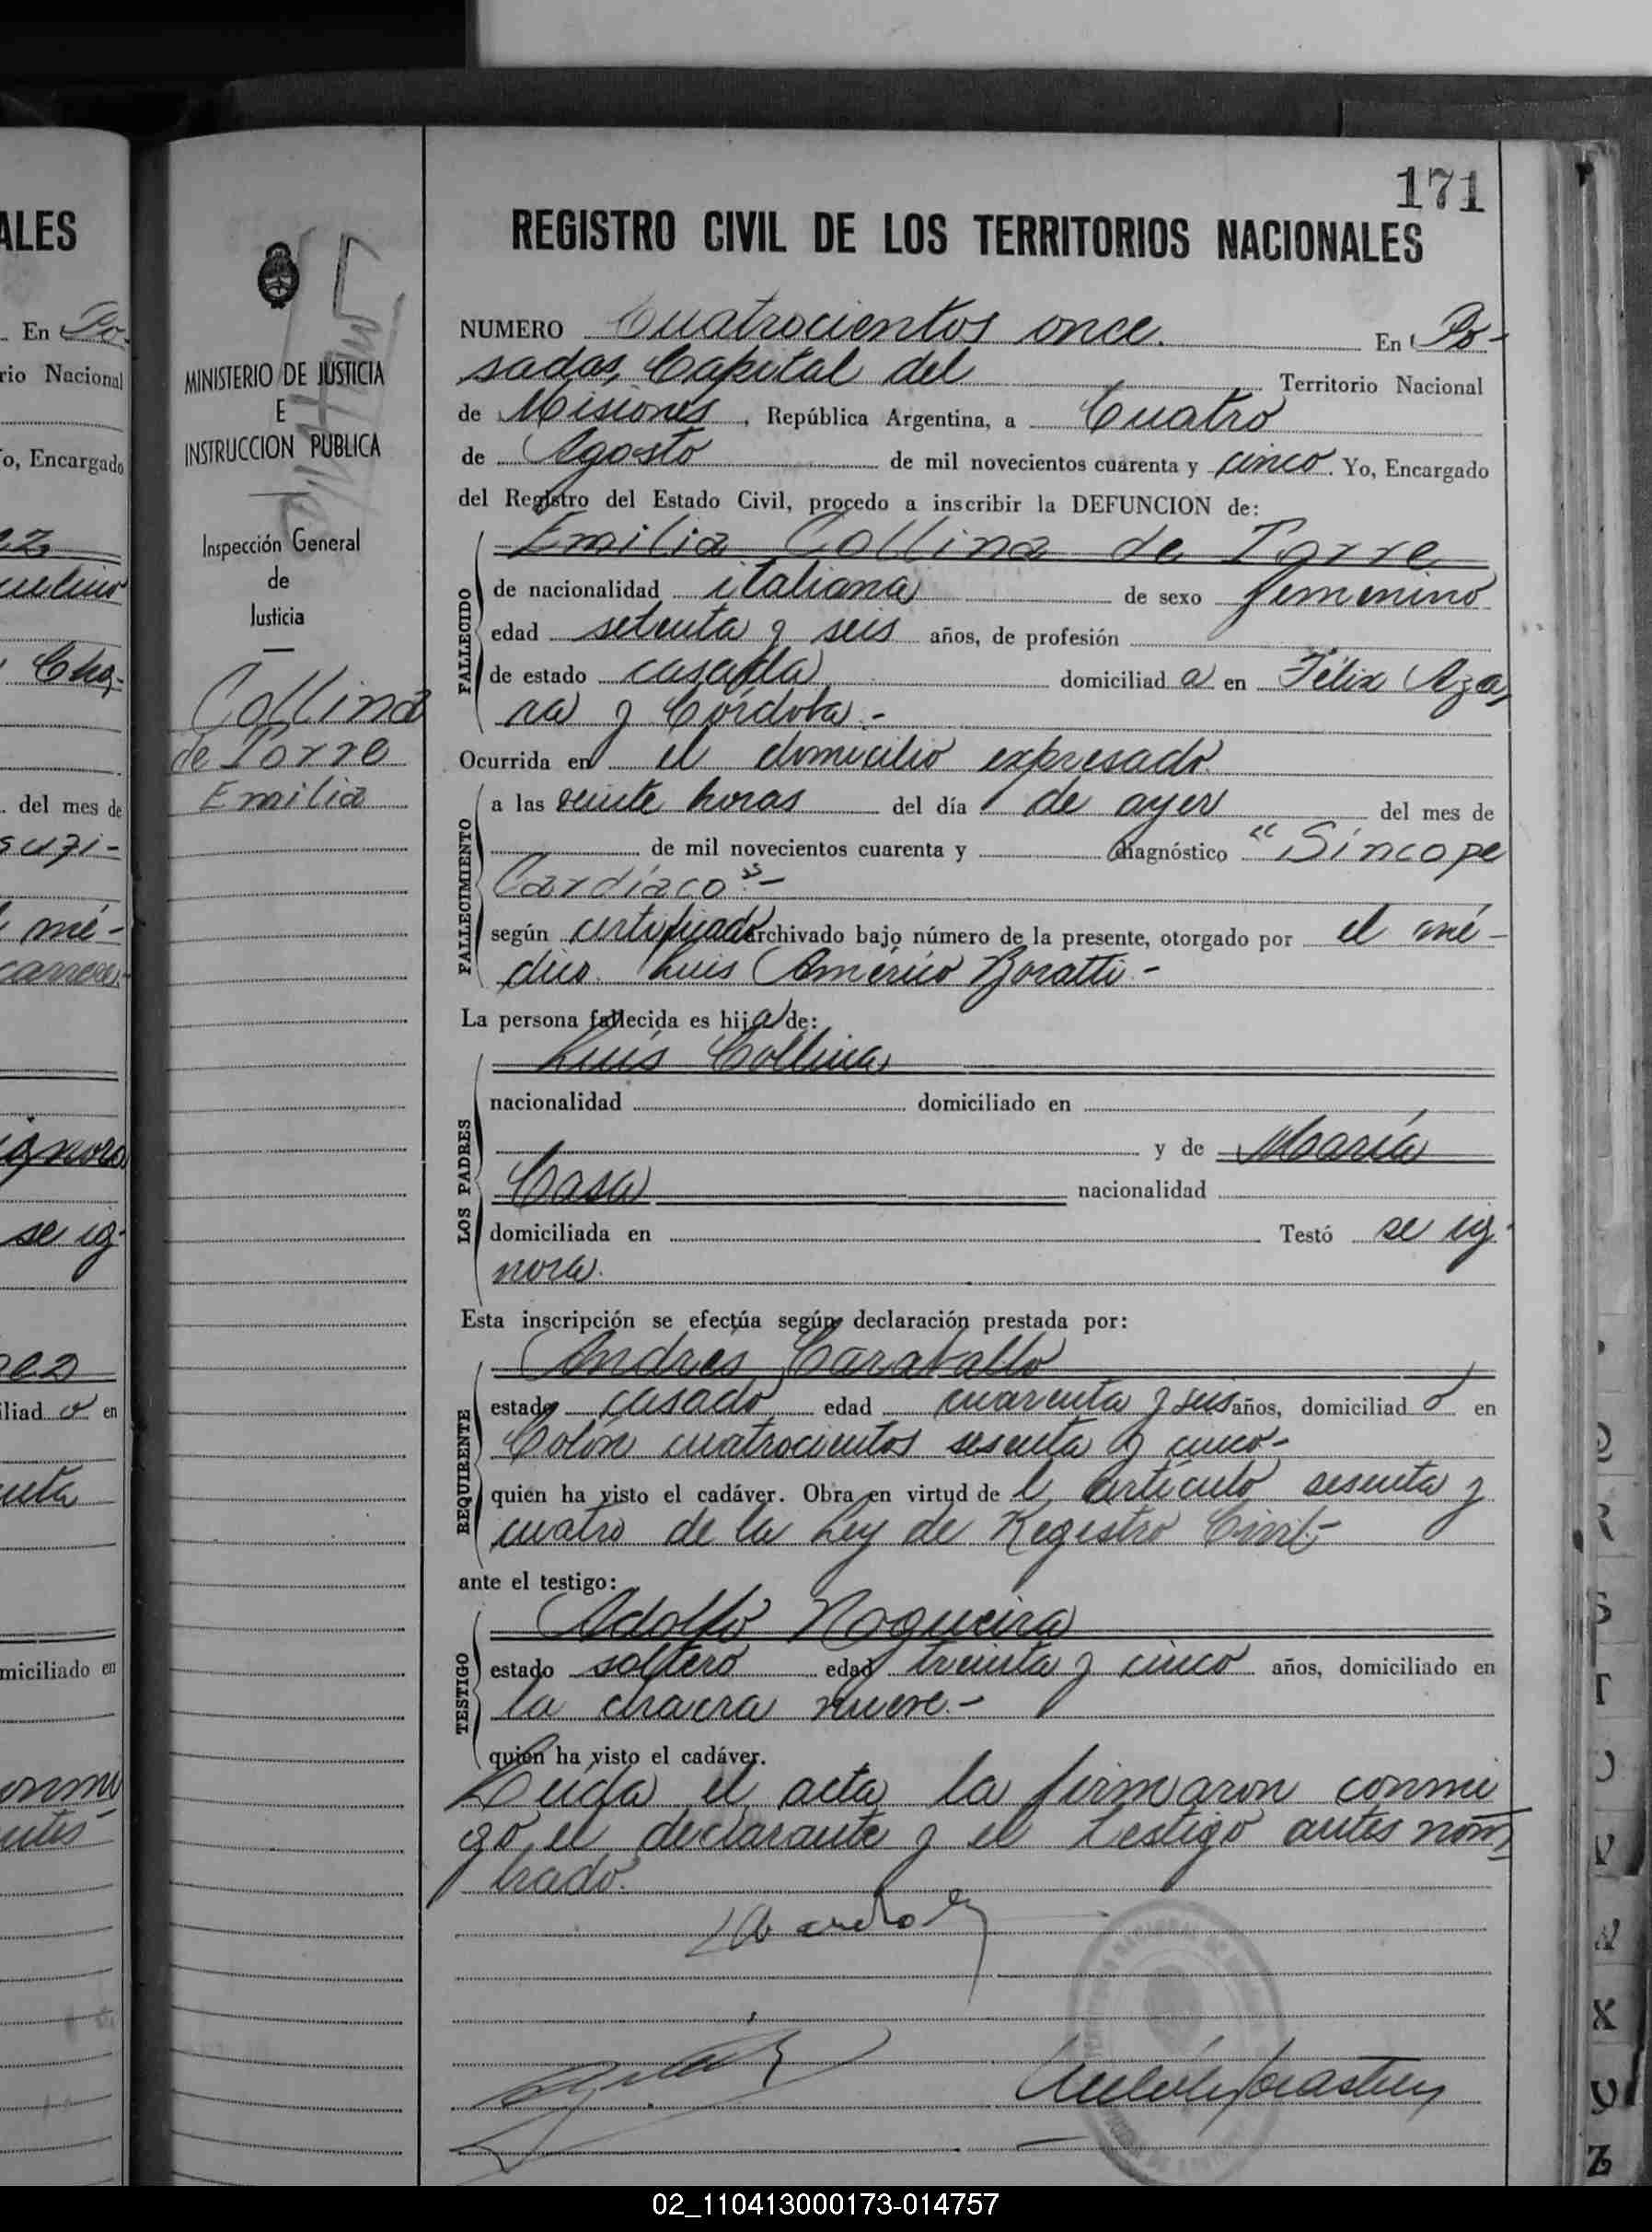 171
REGISTRO CIVIL DE LOS TERRITORIOS NACIONALES
NUMERO Cuatrocientos once. En Po-
sadas, Capital del Territorio Nacional
de Misiones, República Argentina, a Cuatro
de Agosto de mil novecientos cuarenta y cinco. Yo, Encargado
del Registro del Estado Civil, procedo a inscribir la DEFUNCION de:
Emilia Collina de Torre
FALLECIDO
de nacionalidad italiana de sexo femenino
edad setenta y seis años, de profesión
de estado casada domiciliad a en Félix Aza,
ra y Córdoba.-
Ocurrida en el domicilio expresado.
FALLECIMIENTO
a las veinte horas del día de ayer del mes de
de mil novecientos cuarenta y diagnóstico "Síncope
Cardíaco".-
según certificado archivado bajo número de la presente, otorgado por el mé-
dico Luis Américo Boratti.-
La persona fallecida es hija de:
LOS PADRES
Luis Collina
nacionalidad domiciliado en
y de María
Casa nacionalidad
domiciliada en Testó se ig-
nora.
Esta inscripción se efectúa según declaración prestada por:
REQUIRENTE
Andrés Caraballo
estado casado edad cuarenta y seis años, domiciliad o en
Colón cuatrocientos sesenta y cinco-
quien ha visto el cadáver. Obra en virtud de l artículo sesenta y
cuatro de la Ley de Registro Civil-
ante el testigo:
TESTIGO
Adolfo Nogueira
estado soltero edad treinta y cinco años, domiciliado en
la chacra nueve.-
quien ha visto el cadáver.
Leída el acta la firmaron conmi
go, el declarante y el testigo antes nom,
brado.
MINISTERIO DE JUSTICIA
E
INSTRUCCION PUBLICA
Inspección General
de
Justicia
Collina
de Torre
Emilia
ALES
En Po-
rio Nacional
o, Encargado
del mes de
suzi-
mé-
ignora
se ig-
iliad o en
miciliado en
Q
R
S
T
U
V
X
Z
02_110413000173-014757